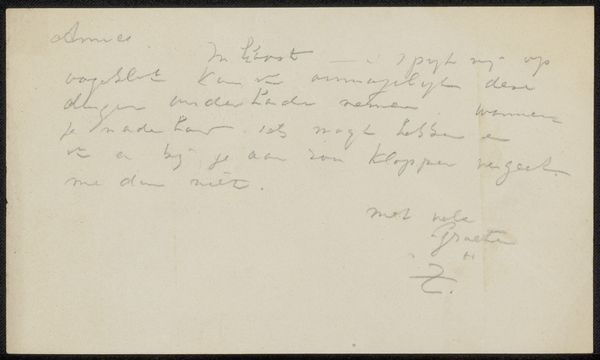 Amice.
In haast — 't spijt mij op
ogenblik kan ik onmogelijk deze
dingen onderhande nemen. wanneer
je nader hand iets mogt hebben en
ik er bij je aan zou kloppen vergeet
me dan niet.
met vele
Groeten
Z.